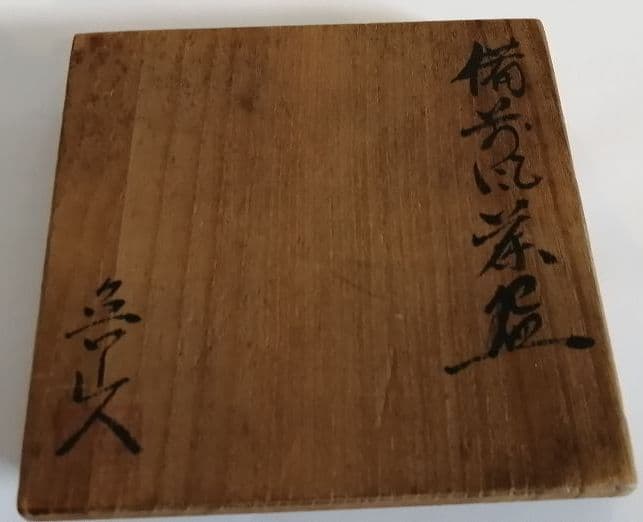 備前風茶盌
魯山人